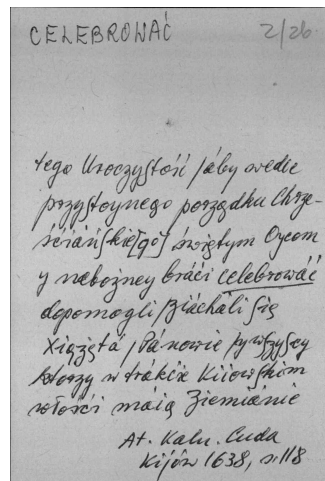 CELEBROWAĆ
2/26
tego Uroczystość / áby wedle
przystoynego porządku Chrze-
śćiáńskie[go] świętym Oycom
y nabożney bráci celebrowáć
dopomogli / ziácháli się
Xiążętá / Pánowie / y wszyscy
ktorzy w trákćie Kijowskim
włośći máią Ziemiánie
At. Kaln. Cuda
Kijów 1638, s. 118